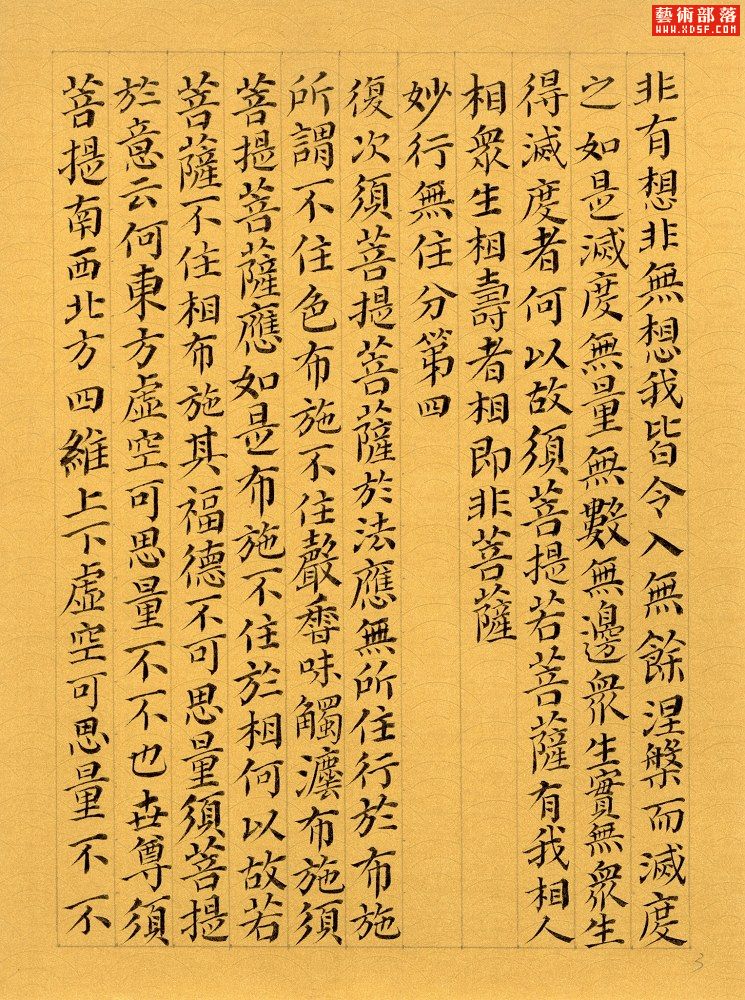 藝術部落
www.XDSF.com
非有想非無想我皆令入無餘涅槃而滅度
之如是滅度無量無數無邊眾生實無眾生
得滅度者何以故須菩提若菩薩有我相人
相眾生相壽者相即非菩薩
妙行無住分第四
復次須菩提菩薩於法應無所住行於布施
所謂不住色布施不住聲香味觸灋布施須
菩提菩薩應如是布施不住於相何以故若
菩薩不住相布施其福德不可思量須菩提
於意云何東方虛空可思量不不也世尊須
菩提南西北方四維上下虛空可思量不不
3